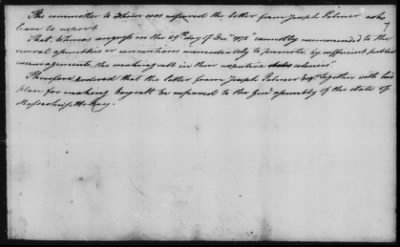 The committee to whom was referred the letter from Joseph Palmer ask
leave to report
That, Whereas congress on the 29th day of Decr 1775 "earnestly recommended to the
several assemblies or conventions immediately to promote by sufficient public
encouragements, the making salt in their respective colonies"
Therefore ordered that the letter from Joseph Palmer Esqr together with his
plan for making bay salt be referred to the genl assembly of the state of
Massachusetts bay.